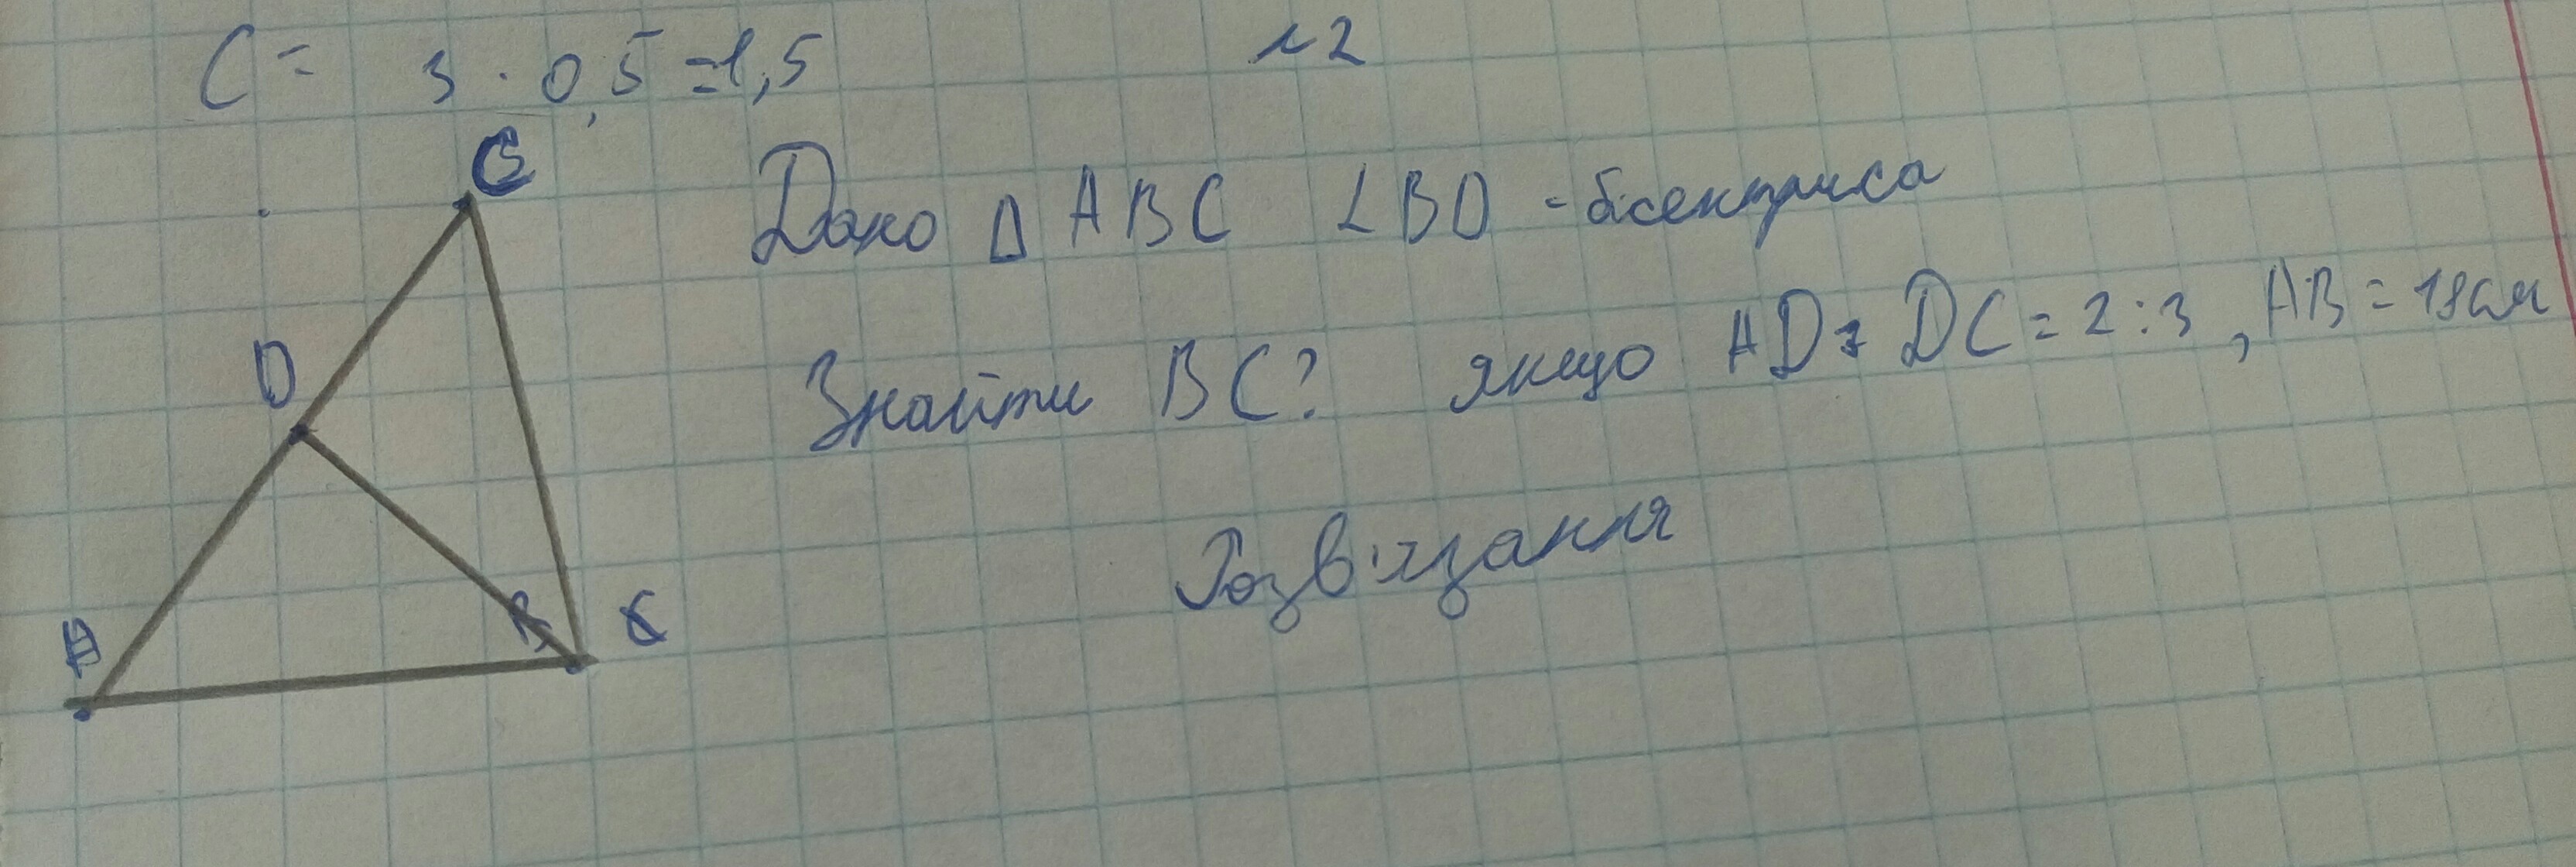 C = 3 · 0,5 = 1,5
№2
C
Дано Δ ABC ∠BD - бісектриса
D
Знайти BC? якщо AD : DC = 2 : 3 , AB = 18см
Розв'язання
A B